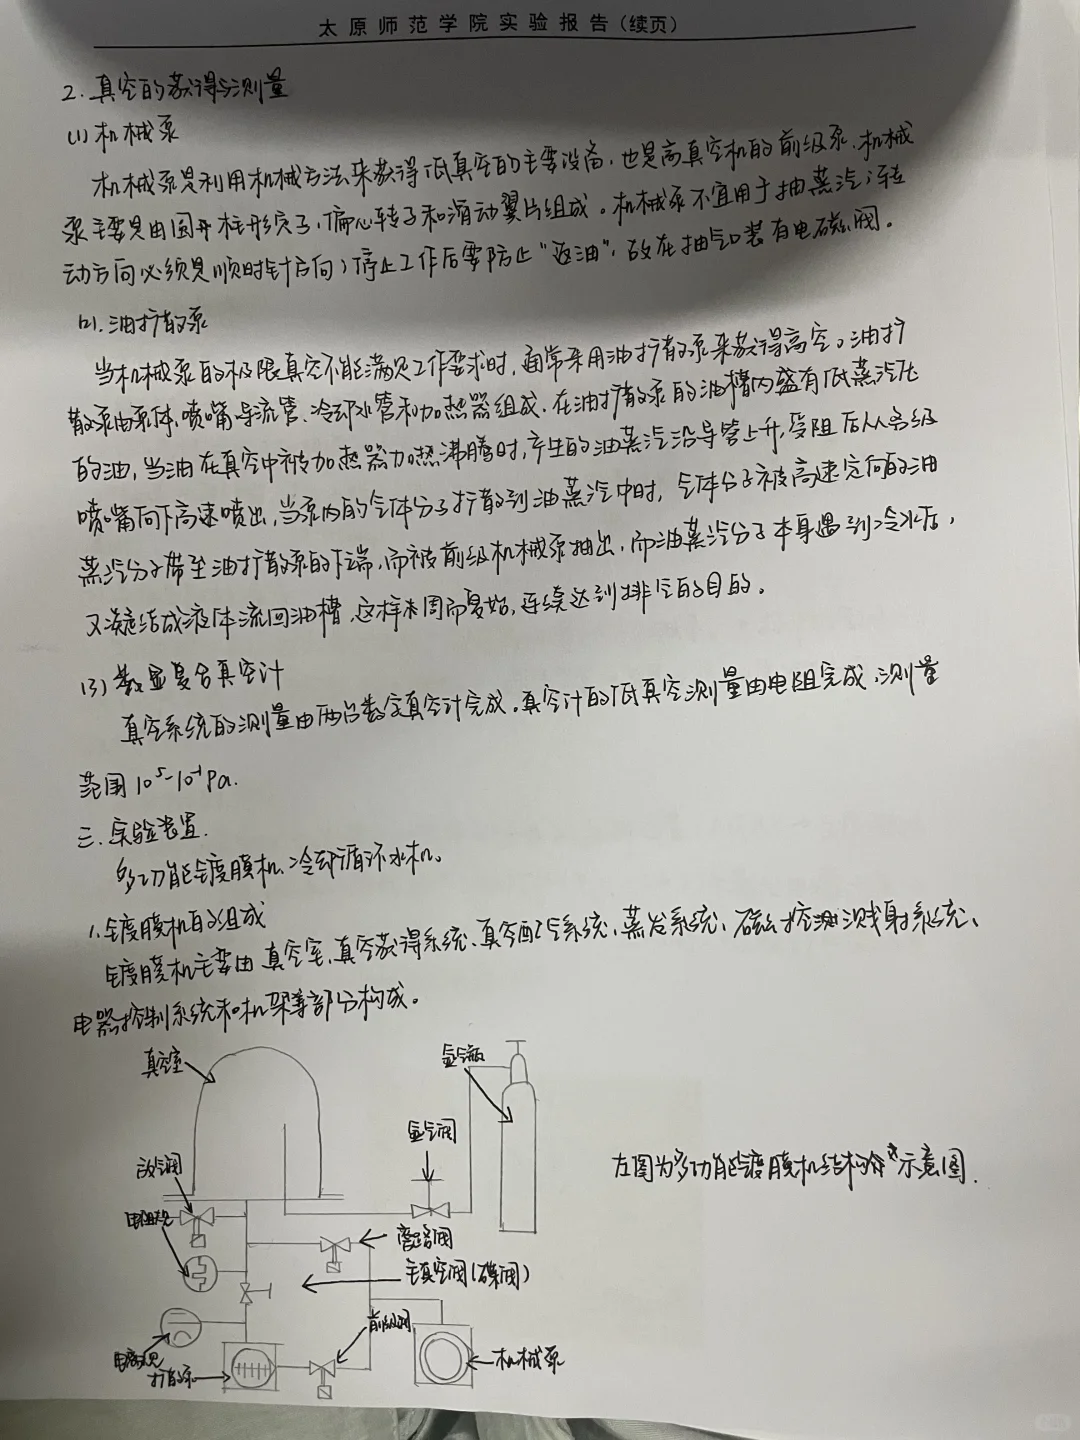 太原师范学院实验报告(续页)
2.真空的获得与测量
(1)机械泵
机械泵是利用机械方法来获得低真空的主要设备,也是高真空机的前级泵、机械
泵主要是由圆开柱形穴子,偏心转子和滑动翼片组成。机械泵不宜用于抽蒸汽;转
动方向必须是顺时针方向;停止工作后要防止“返油”,故在抽气口装有电磁阀。
(2).油扩散泵
当机械泵的极限真空不能满足工作要求时,通常采用油扩散泵来获得高空。油扩
散泵由泵体,喷嘴导流管、冷却水管和加热器组成、在油扩散泵的油槽内盛有低蒸汽压
的油,当油在真空中被加热器加热沸腾时,产生的油蒸汽沿导管上升,受阻后从各级
喷嘴向下高速喷出,当泵内的气体分子扩散到油蒸汽中时,气体分子被高速定向的油
蒸汽分子带至油扩散泵的下端,而被前级机械泵抽出,而油蒸汽分子本身遇到冷水后,
又凝结成液体流回油槽,这样周而复始,连续达到排气的目的。
(3)数显复合真空计
真空系统的测量由两台数字真空计完成。真空计的低真空测量由电阻完成、测量
范围10⁵-10⁻¹Pa.
三.实验装置.
多功能镀膜机、冷却循环水机。
1.镀膜机的组成
镀膜机主要由真空室,真空获得系统、真空配气系统,蒸发系统、磁控溅射系统、
电器控制系统和机架等部分构成。
真空室
氩气瓶
氩气阀
放气阀
左图为多功能镀膜机结构示意图.
电阻规
旁路阀
主真空阀(碟阀)
前级阀
电离规
机械泵
扩散泵